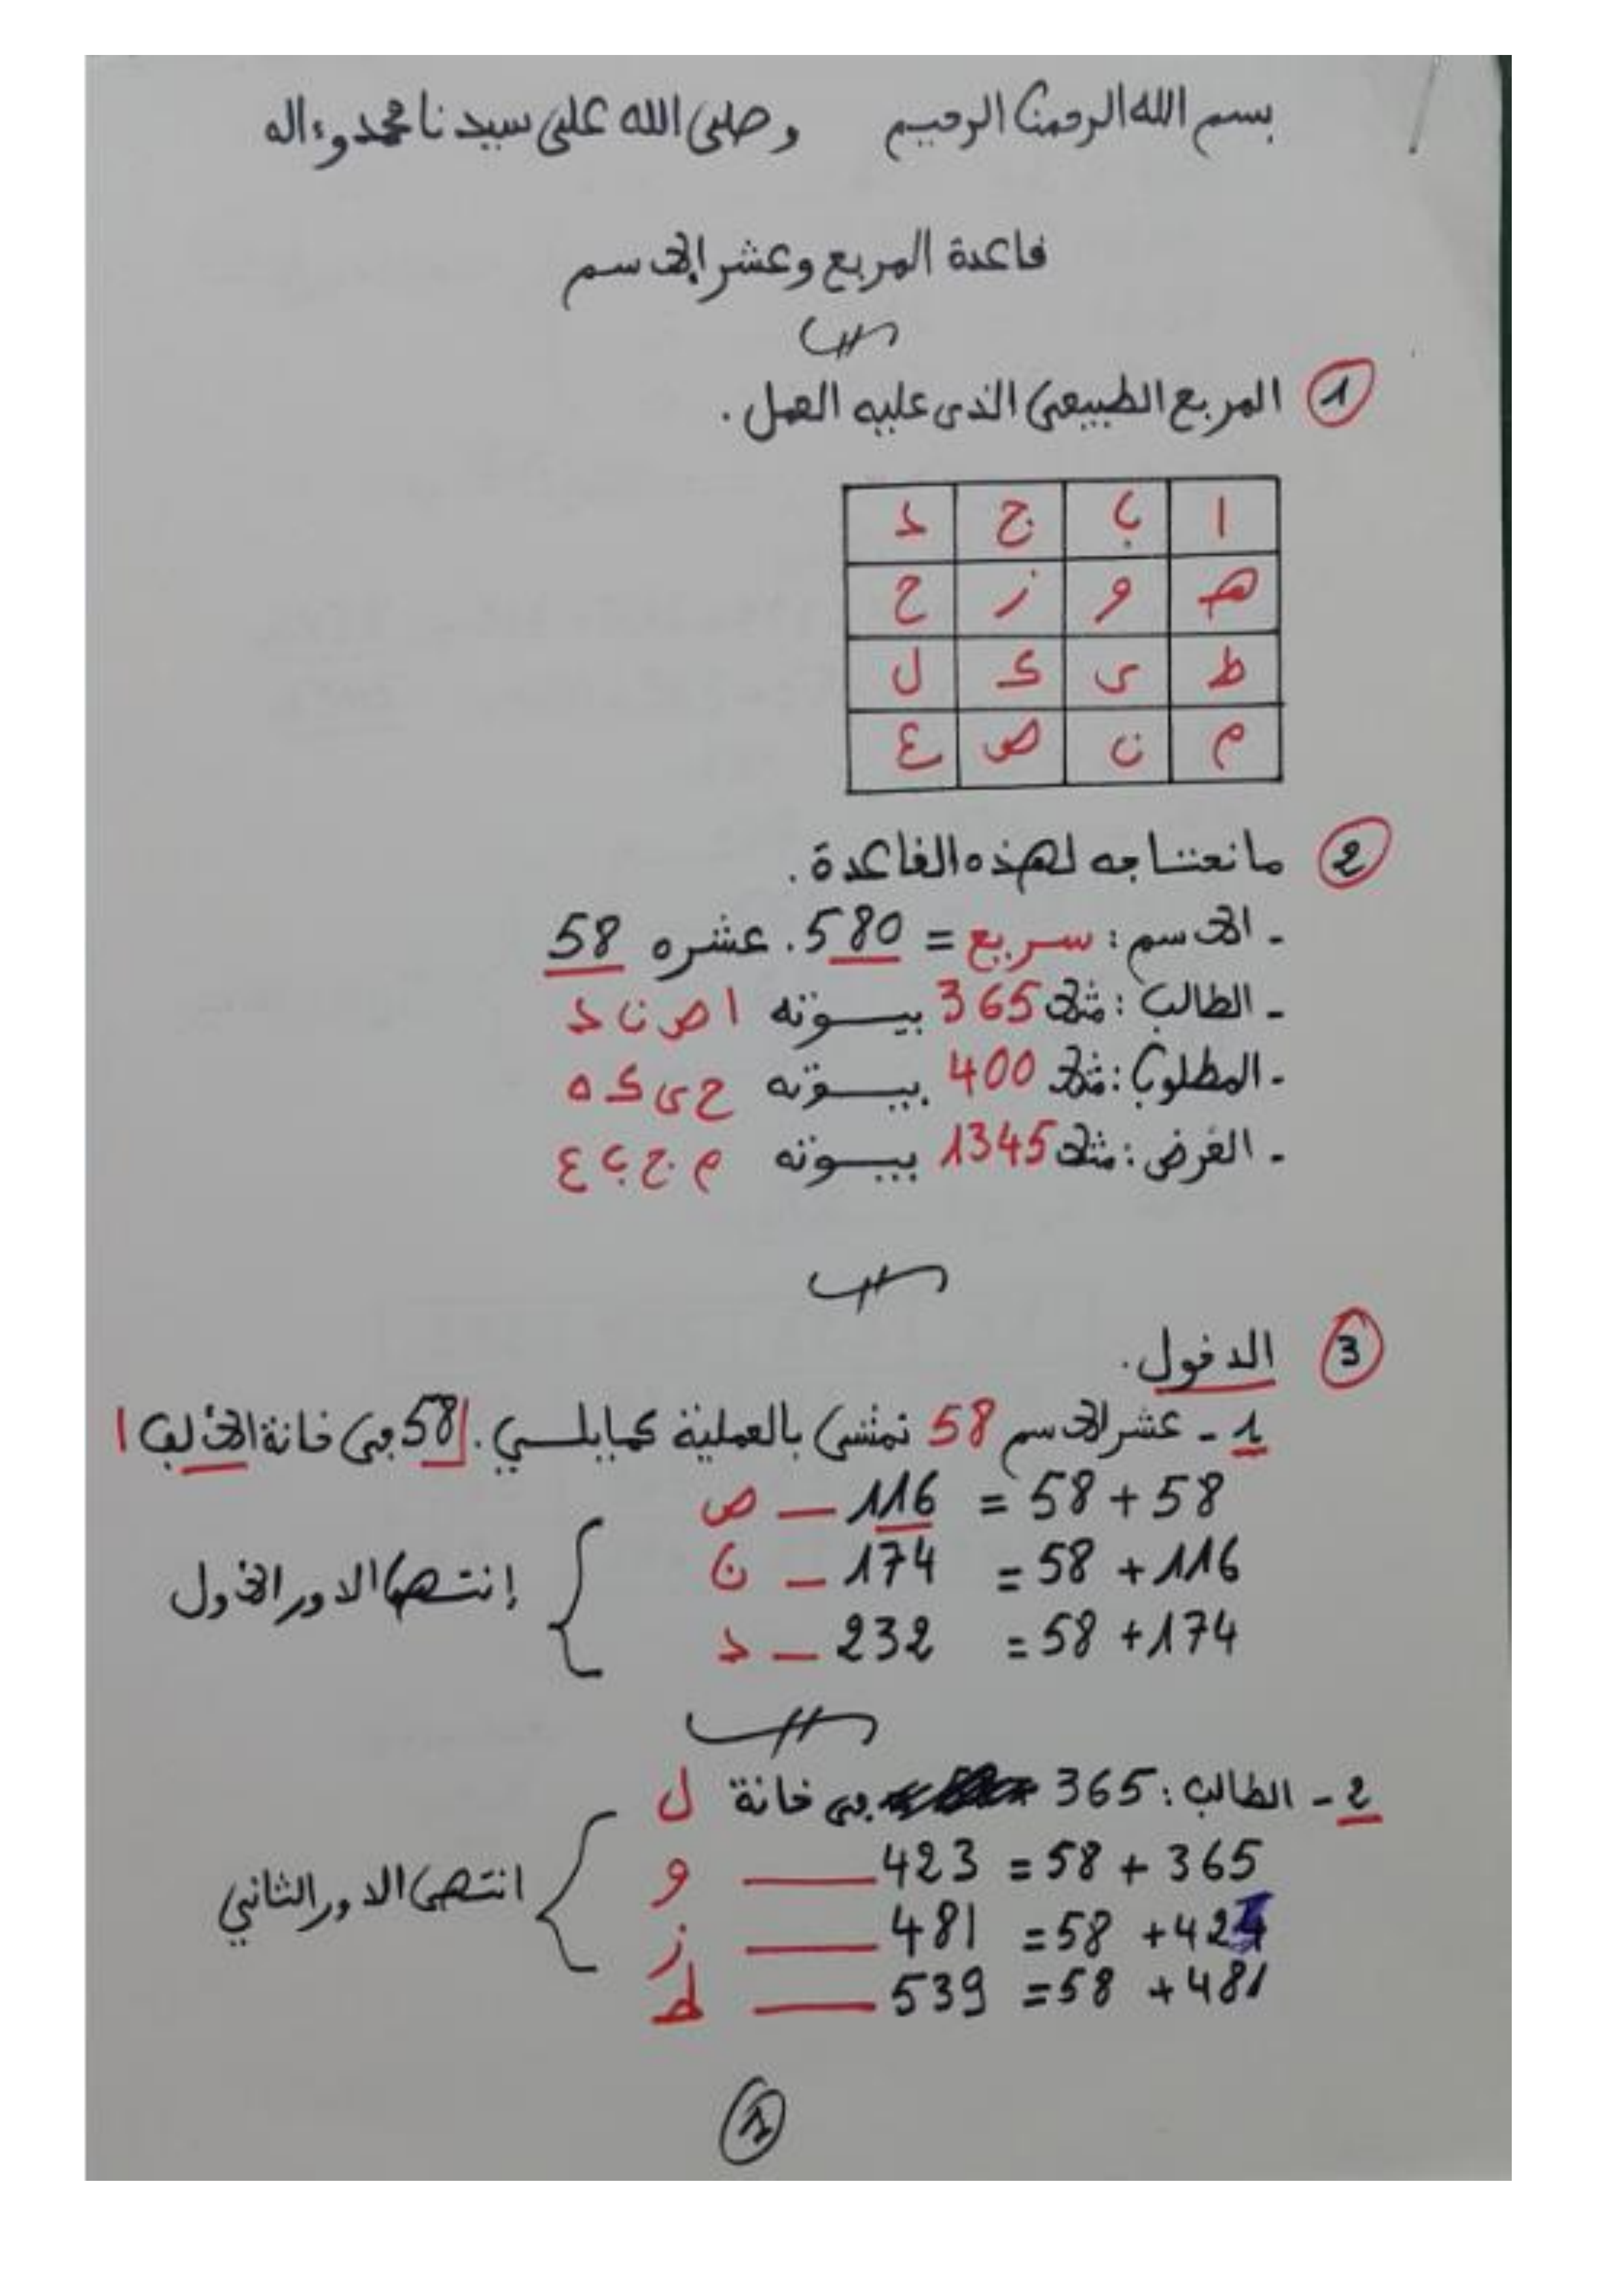 بسم الله الرحمن الرحيم وصلى الله على سيدنا محمد وءاله
فاعدة المربع وعشر الاسم
1 المربع الطبيعي الذى عليه العمل.
ا ب ج د
هـ و ز ح
ط ى ك ل
م ن ص ع
2 ما نحتاجه لهذه الفاعدة.
- الاسم: سريع = 580. عشره 58
- الطالب: مثلا 365 بيوته ا ص ن د
- المطلوب: مثلا 400 بيوته ح ى ك ه
- الغرض: مثلا 1345 بيوته م ج ب ع
3 الدخول.
1 - عشر الاسم 58 نمشى بالعملية كما يلي. 58 في خانة الألف ا
58 + 58 = 116 — ص
116 + 58 = 174 — ن
174 + 58 = 232 — د
إنتهى الدور الأول
2 - الطالب: 365 في خانة ل
365 + 58 = 423 — و
424 + 58 = 481 — ز
481 + 58 = 539 — ط
انتهى الدور الثاني
1